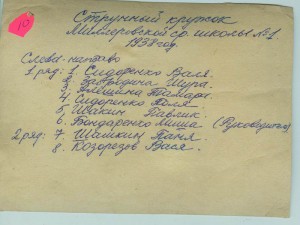 10
Струнный кружок
Миллеровской ср. школы №1
1938 год.
Слева-направо
1 ряд: 1. Сидоренко Валя.
2. Забродина Шура.
3. Алёшина Тамара.
4. Сидоренко Коля
5. Ивакин Павлик.
6. Бондаренко Миша (Руководитель)
2 ряд: 7. Шашкин Ваня.
8. Козорезов Вася.